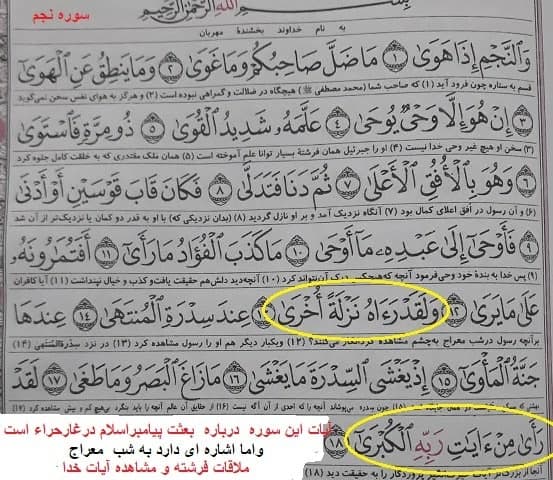 سوره نجم
بِسْمِ اللَّهِ الرَّحْمَٰنِ الرَّحِيمِ
به نام خداوند بخشندهٔ مهربان
وَالنَّجْمِ إِذَا هَوَىٰ ۝١ مَا ضَلَّ صَاحِبُكُمْ وَمَا غَوَىٰ ۝٢ وَمَا يَنطِقُ عَنِ الْهَوَىٰ
قسم به ستاره چون فرود آید (۱) که صاحب شما (محمد مصطفی ﷺ) هیچگاه در ضلالت و گمراهی نبوده است (۲) و هرگز به هوای نفس سخن نمی‌گوید
۝٣ إِنْ هُوَ إِلَّا وَحْيٌ يُوحَىٰ ۝٤ عَلَّمَهُ شَدِيدُ الْقُوَىٰ ۝٥ ذُو مِرَّةٍ فَاسْتَوَىٰ
(۳) سخن او هیچ غیر وحی خدا نیست (۴) او را جبرئیل همان فرشتهٔ بسیار توانا علم آموخته است (۵) همان ملک مقتدری که به خلقت کامل جلوه کرد
۝٦ وَهُوَ بِالْأُفُقِ الْأَعْلَىٰ ۝٧ ثُمَّ دَنَا فَتَدَلَّىٰ ۝٨ فَكَانَ قَابَ قَوْسَيْنِ أَوْ أَدْنَىٰ
(۶) و آن رسول در افق اعلای کمال بود (۷) آنگاه نزدیک آمد و بر او نازل گردید (۸) (بدان نزدیکی که) با او به قدر دو کمان یا نزدیک‌تر از آن شد
۝٩ فَأَوْحَىٰ إِلَىٰ عَبْدِهِ مَا أَوْحَىٰ ۝١٠ مَا كَذَبَ الْفُؤَادُ مَا رَأَىٰ ۝١١ أَفَتُمَارُونَهُ
(۹) پس خدا به بندهٔ خود وحی فرمود آنچه که هیچکس درک آن نتواند کرد (۱۰) آنچه دید دلش هم حقیقت یافت و کذب و خیال نپنداشت (۱۱) آیا کافران
عَلَىٰ مَا يَرَىٰ ۝١٢ وَلَقَدْ رَءَاهُ نَزْلَةً أُخْرَىٰ ۝١٣ عِندَ سِدْرَةِ الْمُنتَهَىٰ ۝١٤ عِندَهَا
برآنچه رسول در شب معراج به‌چشم مشاهده کرد انکار می‌کنند؟ (۱۲) و یکبار دیگر هم او را رسول مشاهده کرد (۱۳) در نزد سِدرَةُ المُنتَهی (۱۴)
جَنَّةُ الْمَأْوَىٰ ۝١٥ إِذْ يَغْشَى السِّدْرَةَ مَا يَغْشَىٰ ۝١٦ مَا زَاغَ الْبَصَرُ وَمَا طَغَىٰ ۝١٧ لَقَدْ
(۱۵) چون سدره می‌پوشاند آنچه که احدی از آن آگه نیست (۱۶) از حقایق آن عالم آنچه را باید بنگرد بی‌هیچ کم و بیش مشاهده کرد (۱۷)
رَأَىٰ مِنْ ءَايَاتِ رَبِّهِ الْكُبْرَىٰ ۝١٨
آنجا از بزرگتر آیات پروردگار را به حقیقت دید (۱۸)
آیات این سوره درباره بعثت پیامبراسلام درغارحراء است
واما اشاره ای دارد به شب معراج
ملاقات فرشته و مشاهده آیات خدا